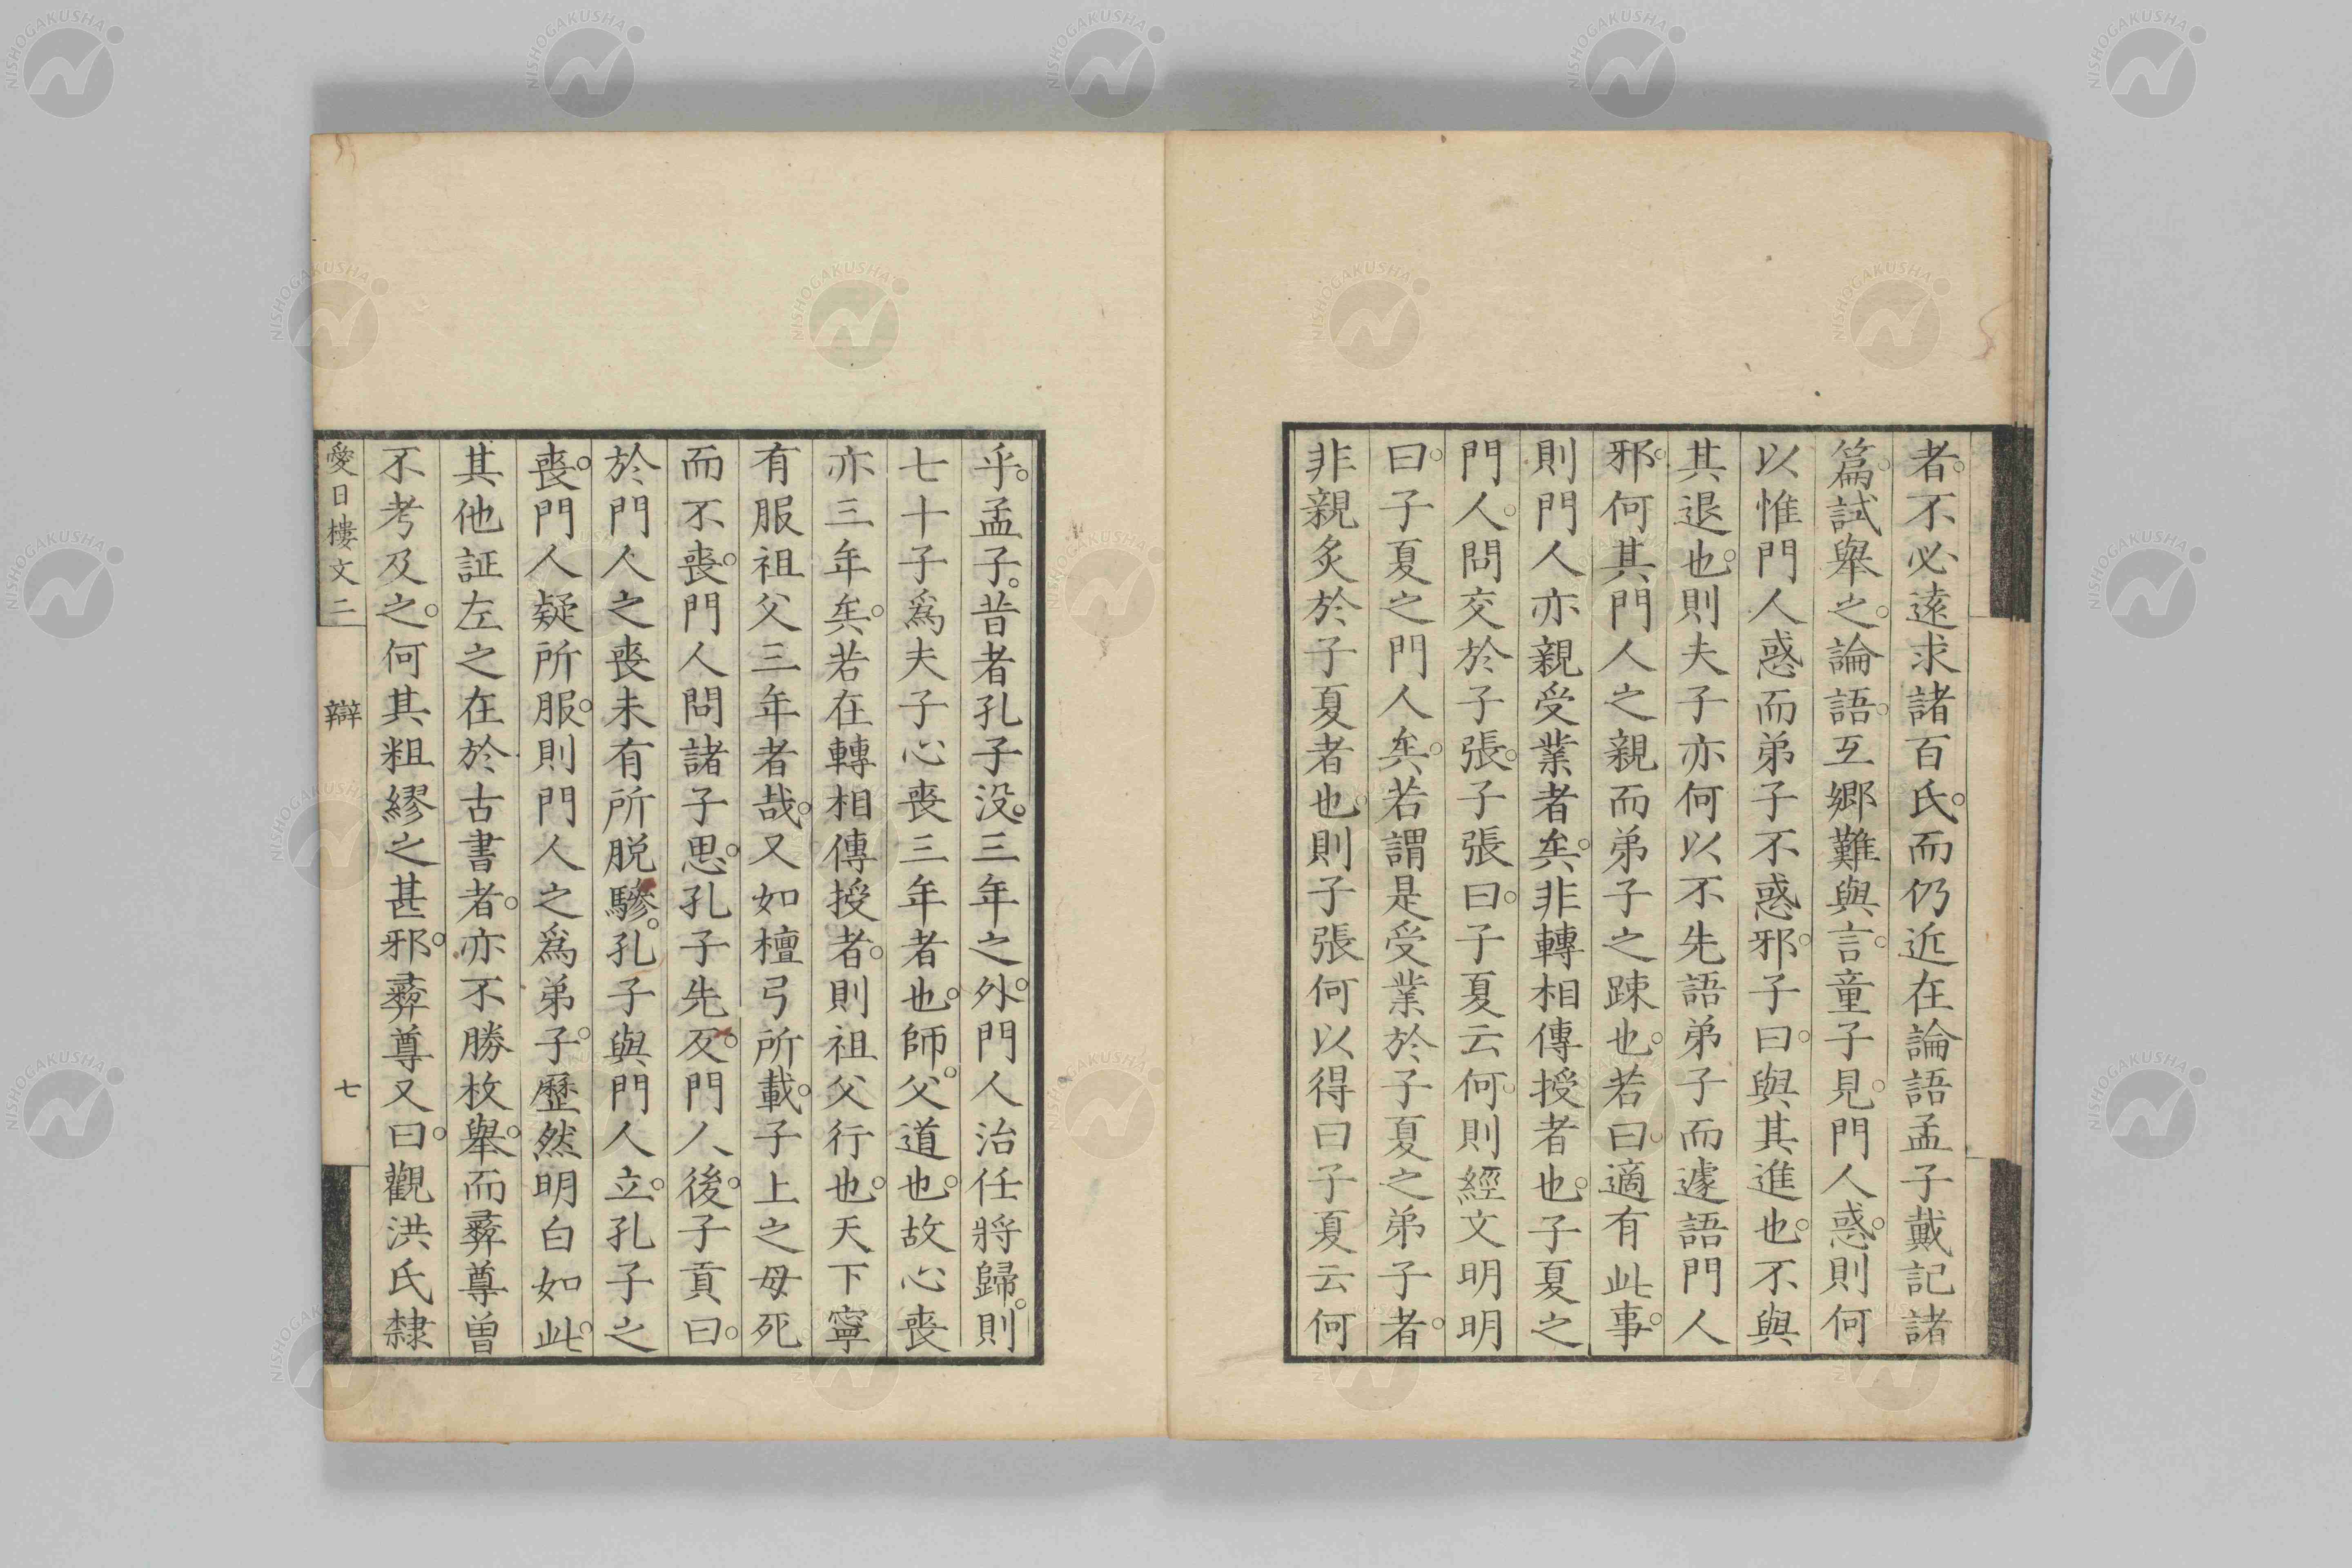 者。不必遠求諸百氏。而仍近在論語孟子戴記諸
篇。試舉之。論語。互鄉難與言。童子見。門人惑。則何
以惟門人惑而弟子不惑邪。子曰。與其進也。不與
其退也。則夫子亦何以不先語弟子而遽語門人
邪。何其門人之親而弟子之踈也。若曰。適有此事。
則門人亦親受業者矣。非轉相傳授者也。子夏之
門人。問交於子張。子張曰。子夏云何。則經文明明
曰。子夏之門人矣。若謂是受業於子夏之弟子者。
非親炙於子夏者也。則子張何以得曰子夏云何
乎。孟子。昔者孔子没。三年之外。門人治任將歸。則
七十子爲夫子心喪三年者也。師。父道也。故心喪
亦三年矣。若在轉相傳授者。則祖父行也。天下寧
有服祖父三年者哉。又如檀弓所載。子上之母死
而不喪。門人問諸子思。孔子先反。門人後。子貢曰。
於門人之喪未有所脱驂。孔子與門人立。孔子之
喪。門人疑所服。則門人之爲弟子。歷然明白如此。
其他証左之在於古書者。亦不勝枚舉。而彛尊曾
不考及之。何其粗繆之甚邪。彛尊又曰。觀洪氏隸
愛日樓文二
辯
七
NISHOGAKUSHA